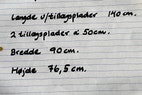 Længde u/tillægsplader 140 cm.
2 tillægsplader á 50cm.
Bredde 90 cm.
Højde 76,5 cm.